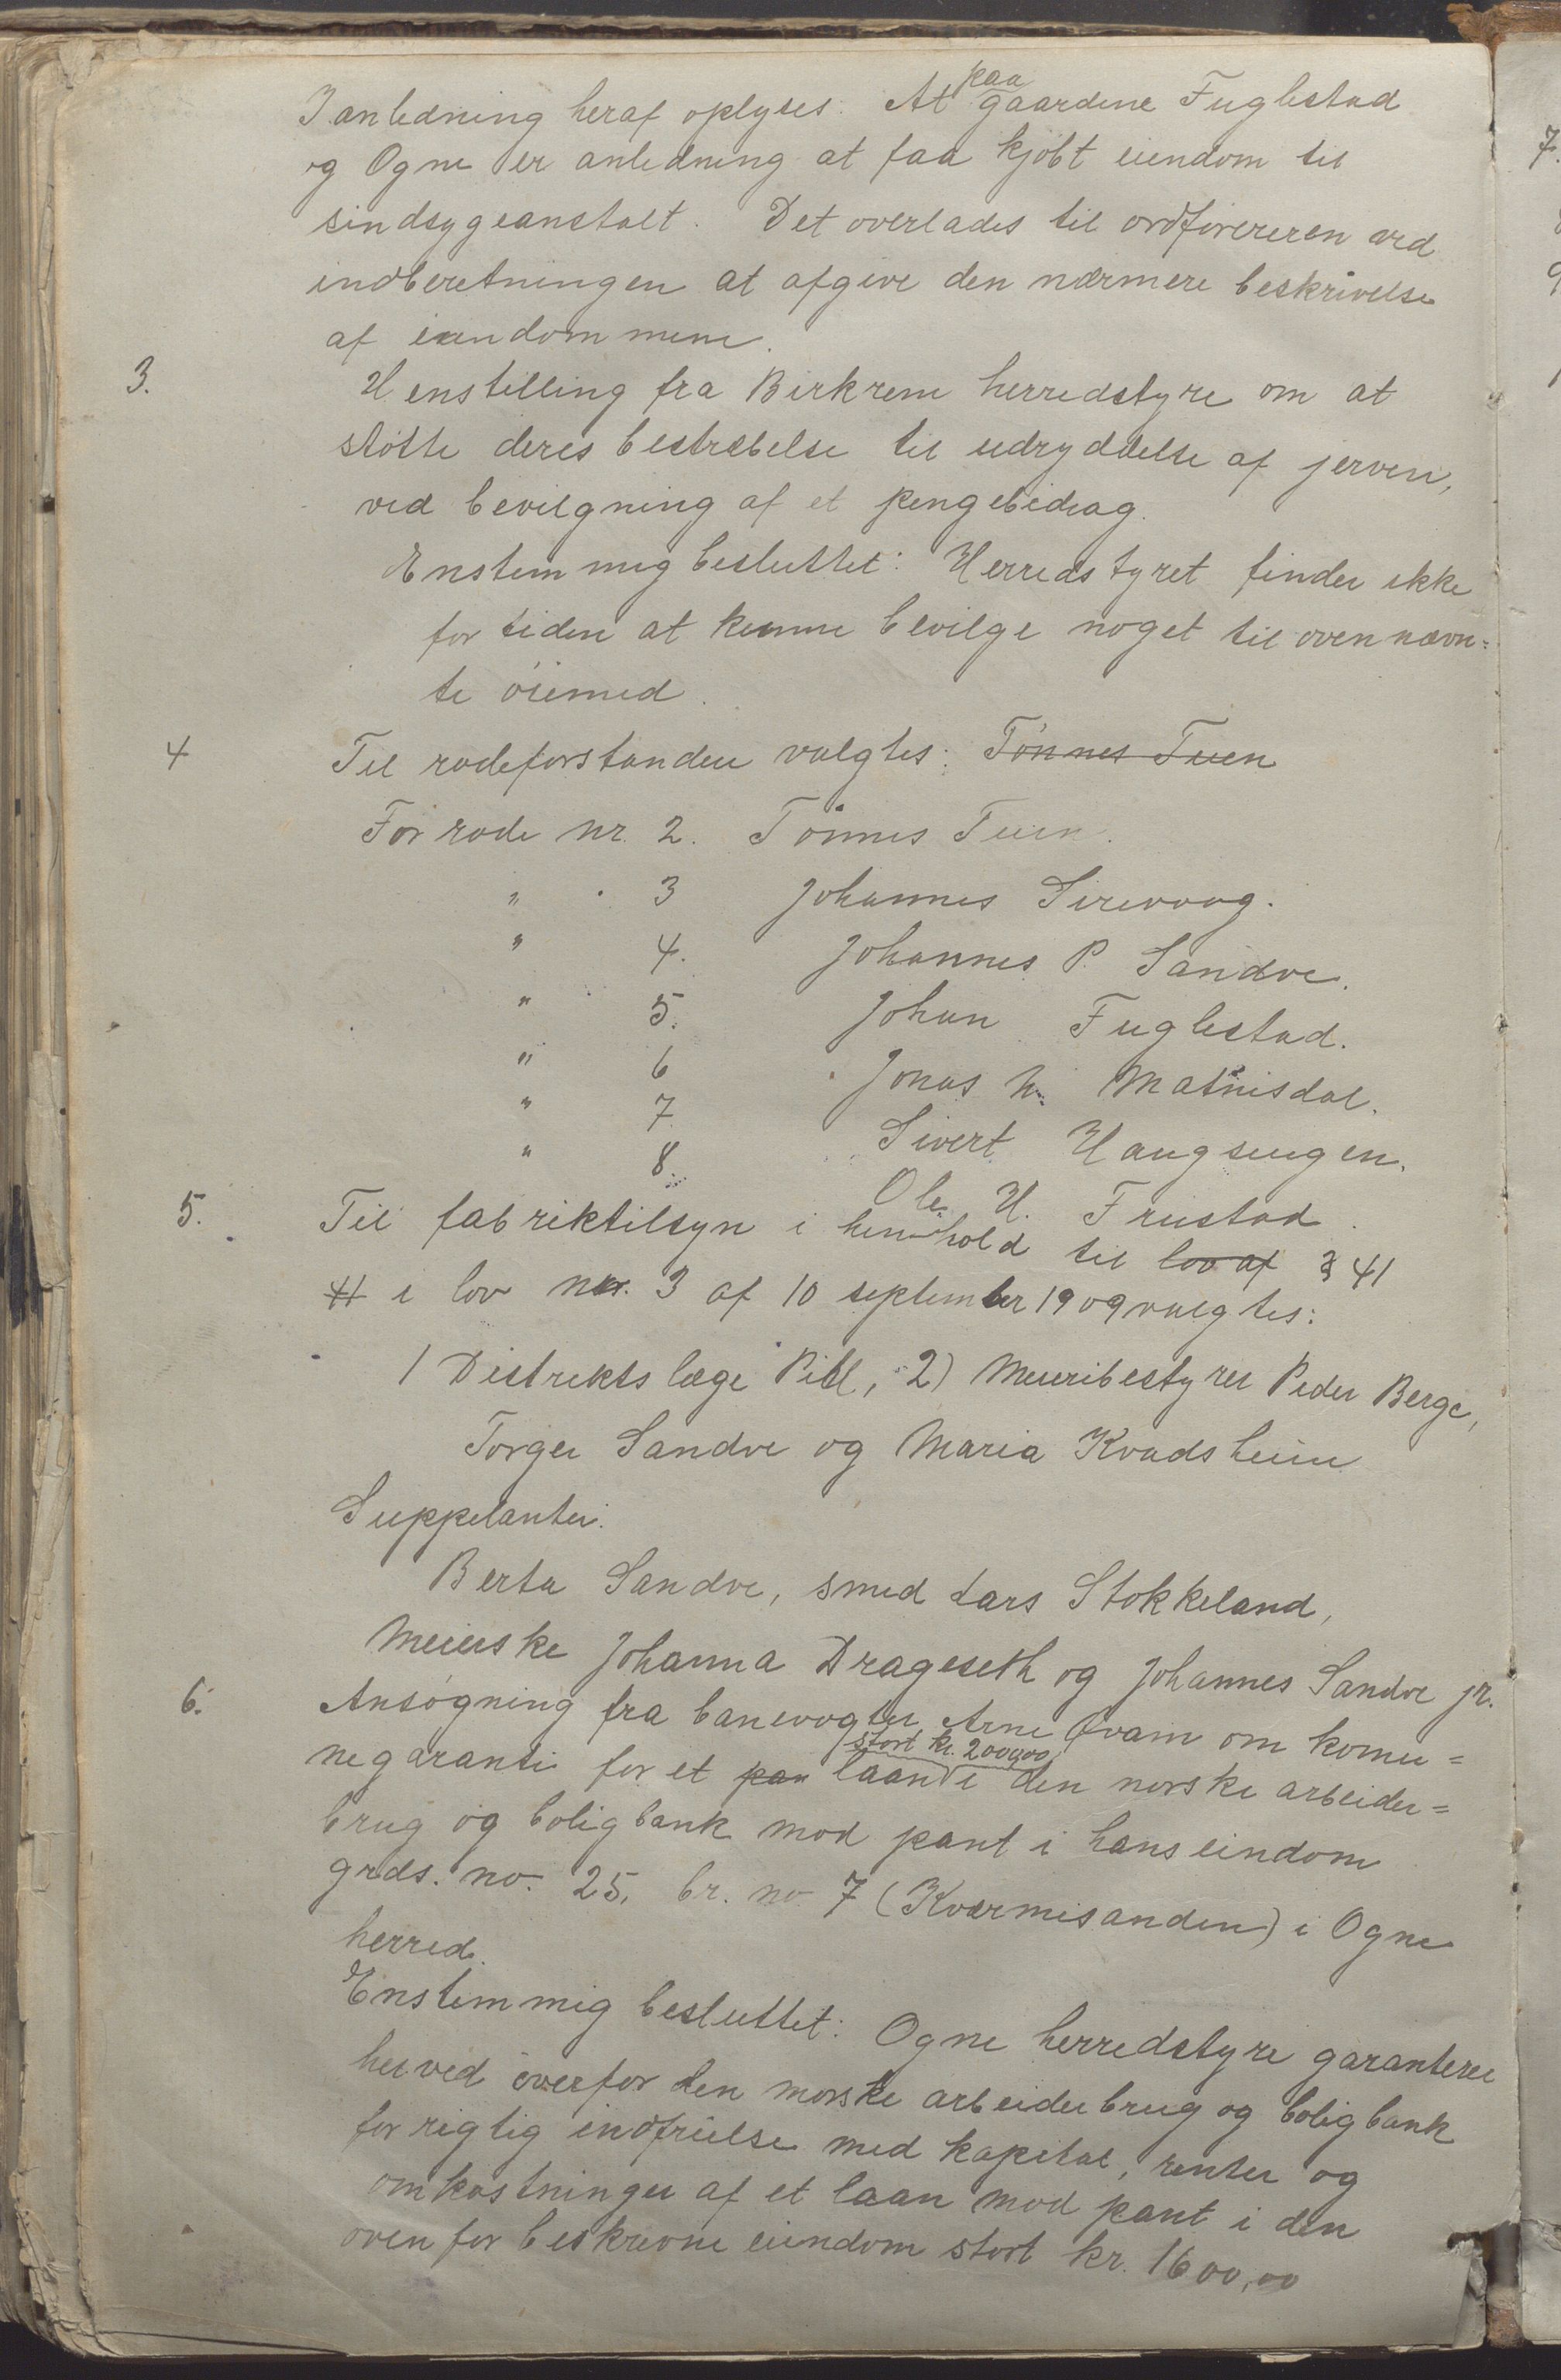 I anledning heraf oplyses: At paa gaardene Fuglestad
og Ogne er anledning at faa kjöbt eiendom til
sindsygeanstalt. Det overlades til ordförereren ved
indberetningen at afgive den nærmere beskrivelse
af eiendommene.
3. Henstilling fra Birkrem herredstyre om at
stötte deres bestræbelse til udryddelse af jerven,
ved bevilgning af et pengebidrag.
Enstemmig besluttet: Herredstyret finder ikke
for tiden at kunne bevilge noget til ovennævn=
te öiemed.
4 Til rodeforstander valgtes: Tönnes Tuen
For rode nr. 2. Tönnes Tuen.
" " 3 Johannes Sirevaag.
" 4. Johannes P. Sandve.
" " 5. Johan Fuglestad.
" 6 Jonas h. Matnisdal.
" 7 Sivert Haugseugen.
" 8. Ole H. Friestad.
5. Til fabriktilsyn i henhold til lov af § 41
41 i lov nr. 3 af 10 september 1909 valgtes:
1 Distriktslæge Pihl, 2) Meieribestyrer Peder Berge,
Torger Sandve og Maria Kvadsheim
Suppelanter:
Berta Sandve, smed Lars Stokkeland,
Meierske Johanna Drageseth og Johannes Sandve jr.
6. Ansögning fra banevogter Arne Qvam om komu=
negaranti for et pan laan stort kr. 2000,00 i den norske arbeider=
brug og boligbank mod pant i hans eindom
grds. no. 25, br. no 7 (Kværmisanden) i Ogne
herred.
Enstemmig besluttet: Ogne herredstyre garanterer
herved överfor den norske arbeiderbrug og boligbank
for rigtig indfrielse med kapital, renter og
omkostninger af et laan mod pant i den
ovenfor beskrevne eiendom stort kr. 1600,00
7.